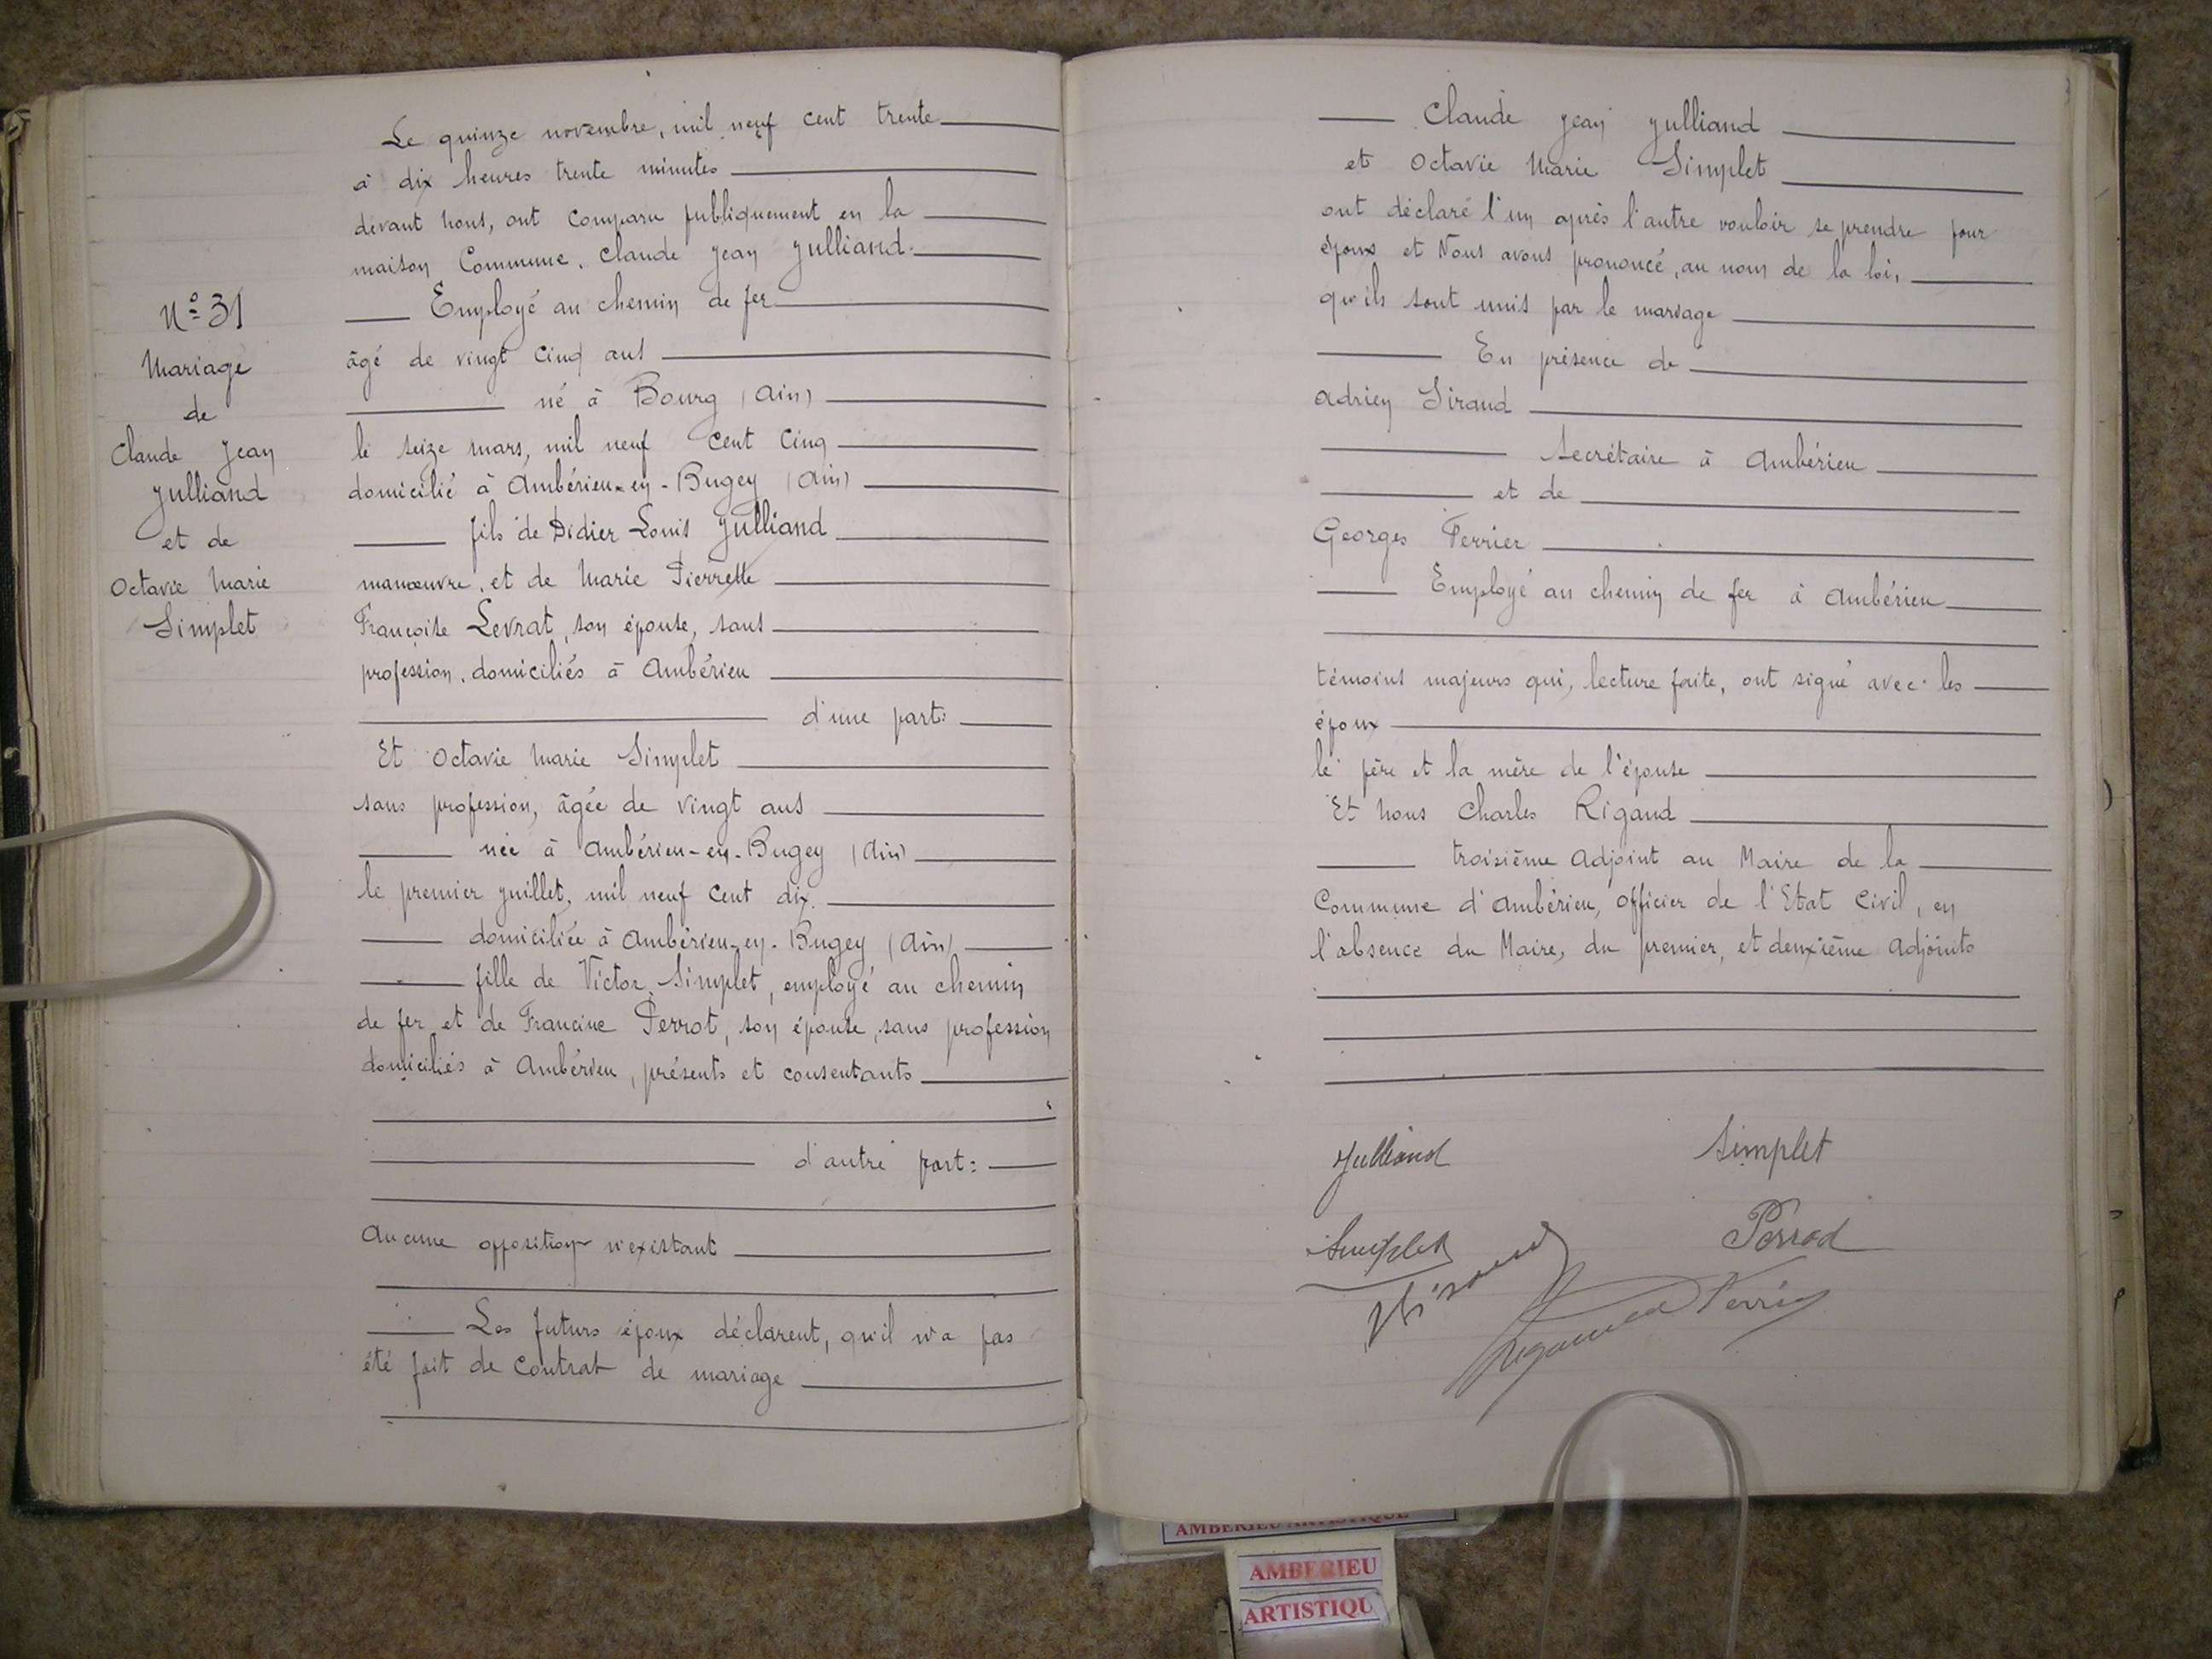 N° 31
Mariage
de
Claude Jean
Julliand
et de
Octavie Marie
Simplet
Le quinze novembre, mil neuf cent trente
à dix heures trente minutes
devant nous, ont comparu publiquement en la
maison Commune. Claude Jean Julliand.
Employé au chemin de fer
âgé de vingt cinq ans
né à Bourg (Ain)
le seize mars, mil neuf cent cinq
domicilié à Ambérieu-en-Bugey (Ain)
fils de Didier Louis Julliand
manœuvre. et de Marie Pierrette
Françoise Levrat, son épouse, sans
profession. domiciliés à Ambérieu
d'une part:
Et Octavie Marie Simplet
sans profession, âgée de vingt ans
née à Ambérieu-en-Bugey (Ain)
le premier juillet, mil neuf cent dix.
domiciliée à Ambérieu-en-Bugey (Ain)
fille de Victor Simplet, employé au chemin
de fer et de Francine Perrot, son épouse, sans profession
domiciliés à Ambérieu, présents et consentants
d'autre part:
Aucune opposition n'existant
Les futurs époux déclarent, qu'il n'a pas
été fait de contrat de mariage
Claude Jean Julliand
et Octavie Marie Simplet
ont déclaré l'un après l'autre vouloir se prendre pour
époux et Nous avons prononcé, au nom de la loi,
qu'ils sont unis par le mariage
En présence de
Adrien Siraud
Secrétaire à Ambérieu
et de
Georges Ferrier
Employé au chemin de fer à Ambérieu
témoins majeurs qui, lecture faite, ont signé avec les
époux
le père et la mère de l'épouse
Et nous Charles Rigaud
troisième Adjoint au Maire de la
Commune d'Ambérieu, Officier de l'Etat Civil, en
l'absence du Maire, du premier, et deuxième Adjoints
Julliand
Simplet
Simplet
Perrod
AMBERIEU ARTISTIQUE
AMBERIEU
ARTISTIQU